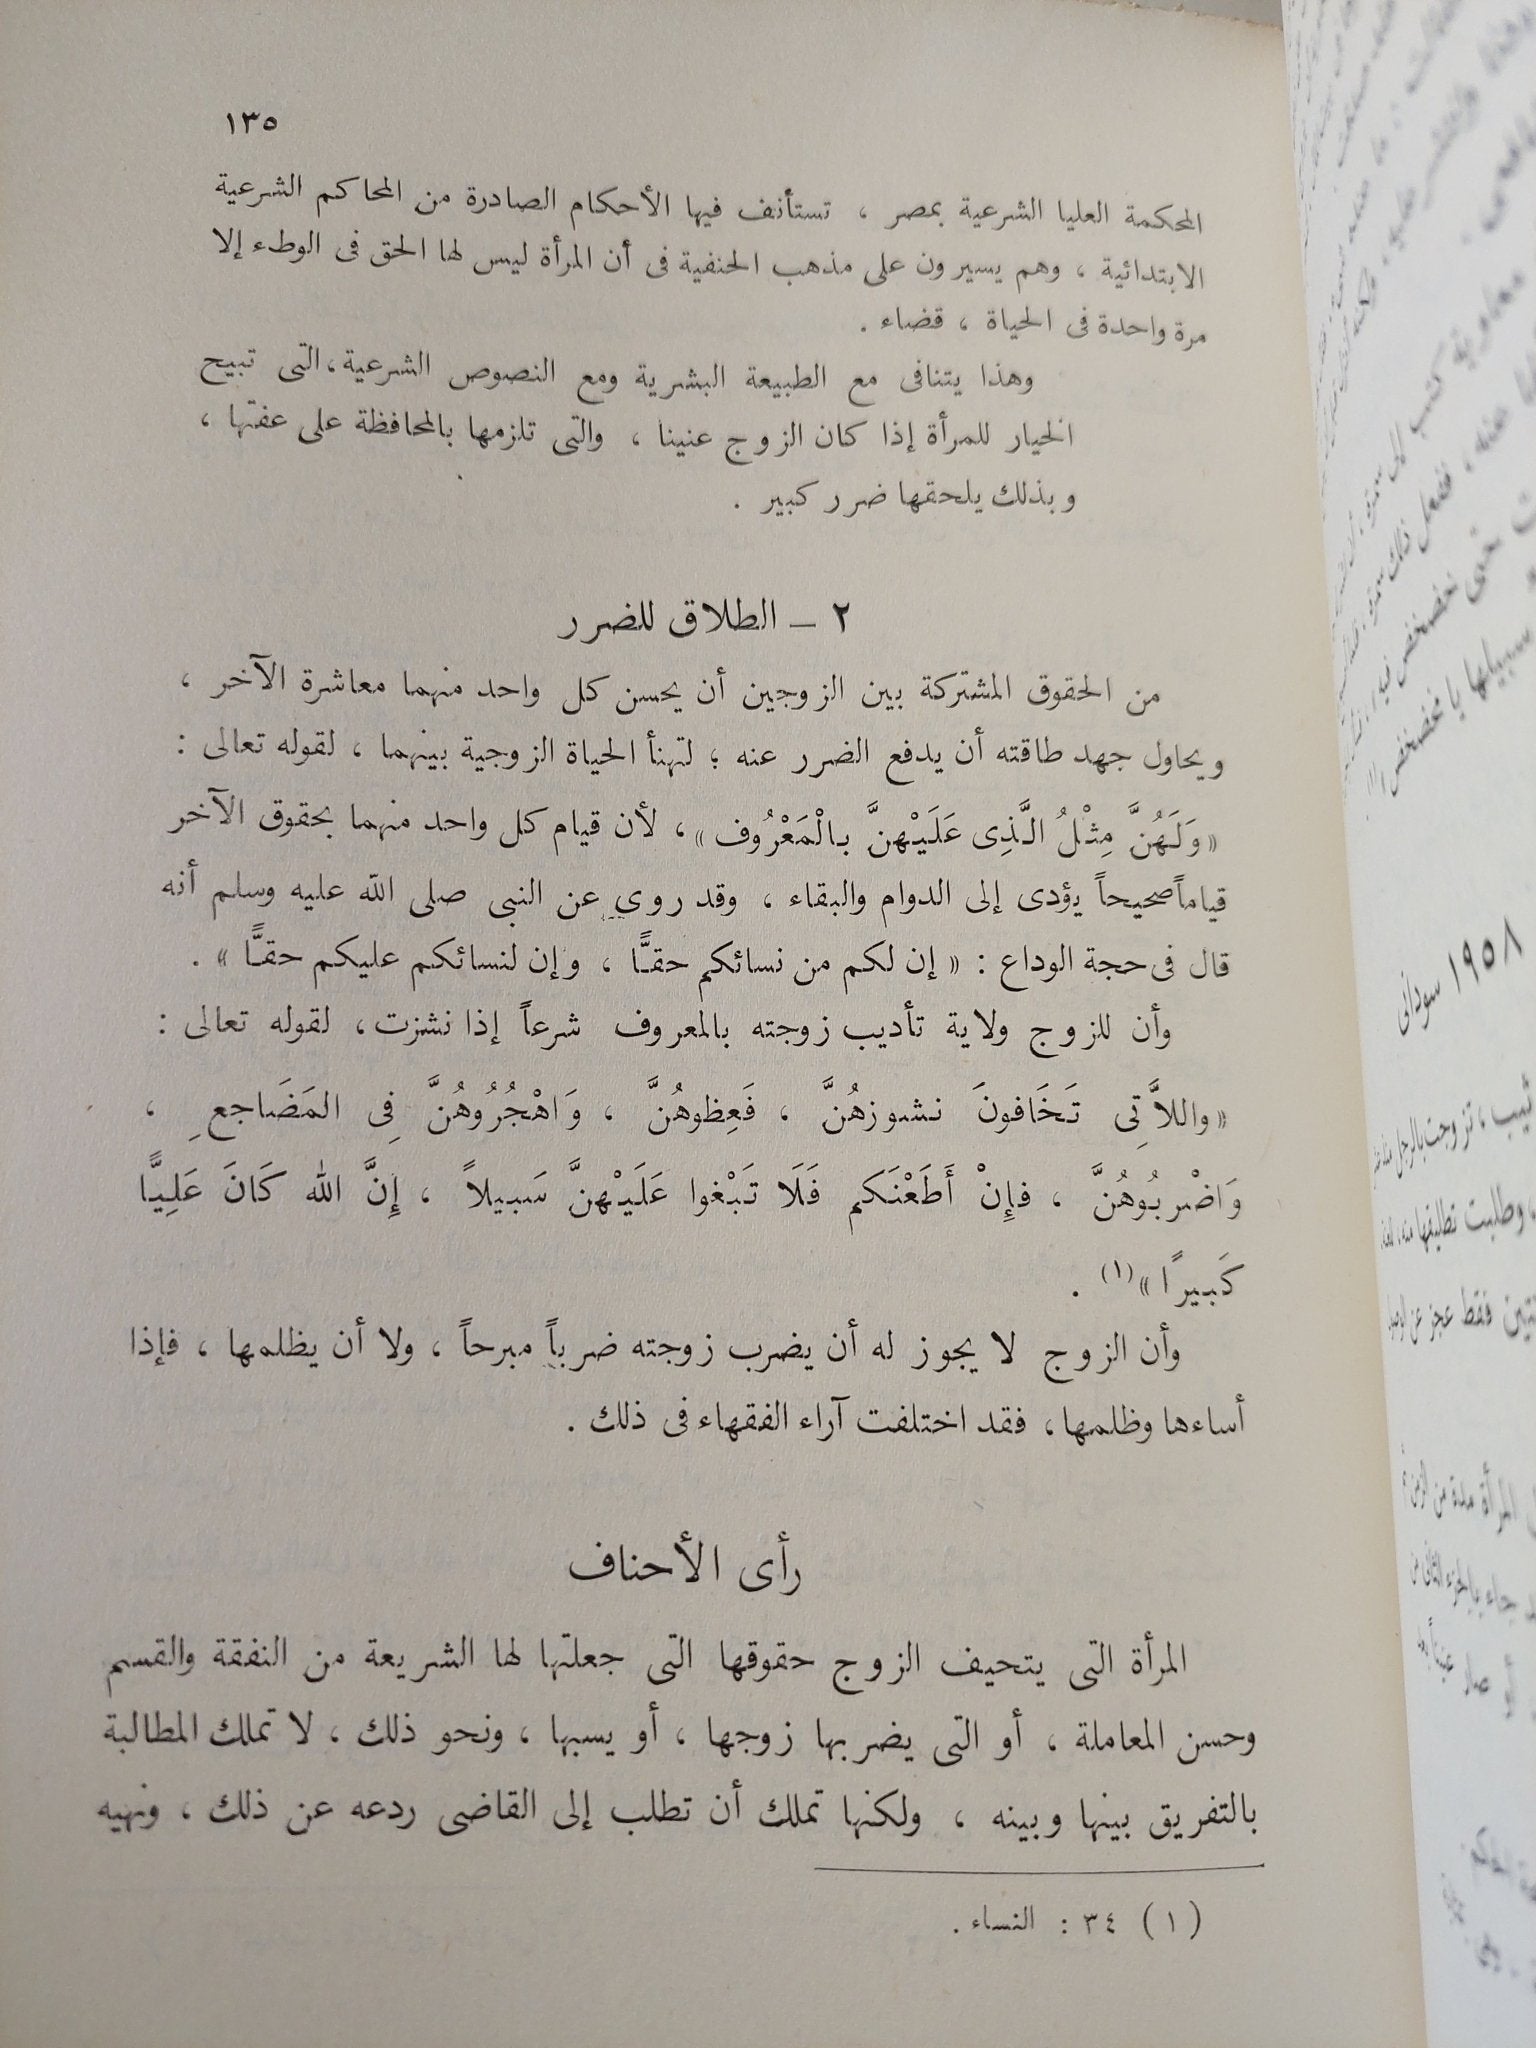 ١٣٥
المحكمة العليا الشرعية بمصر ، تستأنف فيها الأحكام الصادرة من المحاكم الشرعية
الابتدائية ، وهم يسيرون على مذهب الحنفية فى أن المرأة ليس لها الحق فى الوطء إلا
مرة واحدة فى الحياة ، قضاء .
وهذا يتنافى مع الطبيعة البشرية ومع النصوص الشرعية ، التى تبيح
الخيار للمرأة إذا كان الزوج عنينا ، والتى تلزمها بالمحافظة على عفتها ،
وبذلك يلحقها ضرر كبير .
٢ – الطلاق للضرر
من الحقوق المشتركة بين الزوجين أن يحسن كل واحد منهما معاشرة الآخر ،
ويحاول جهد طاقته أن يدفع الضرر عنه ؛ لتهنأ الحياة الزوجية بينهما ، لقوله تعالى :
« وَلَهُنَّ مِثْلُ الَّذِى عَلَيْهنَّ بالْمَعْرُوف » ، لأن قيام كل واحد منهما بحقوق الآخر
قياماً صحيحاً يؤدى إلى الدوام والبقاء ، وقد روى عن النبى صلى الله عليه وسلم أنه
قال فى حجة الوداع : « إن لكم من نسائكم حقًّا ، وإن لنسائكم عليكم حقًّا » .
وأن للزوج ولاية تأديب زوجته بالمعروف شرعاً إذا نشزت ، لقوله تعالى :
« واللاَّتِى تَخَافونَ نشوزهُنَّ ، فَعِظوهُنَّ ، وَاهْجُرُوهُنَّ فِى المَضَاجعِ ،
وَاضْربُوهُنَّ ، فإِنْ أَطَعْنَكم فَلَا تَبْغوا عَلَيْهنَّ سَبيلاً ، إِنَّ الله كَانَ عَلِيًّا
كَبيرًا » (١) .
وأن الزوج لا يجوز له أن يضرب زوجته ضرباً مبرحاً ، ولا أن يظلمها ، فإذا
أساءها وظلمها ، فقد اختلفت آراء الفقهاء فى ذلك .
رأى الأحناف
المرأة التى يتحيف الزوج حقوقها التى جعلتها لها الشريعة من النفقة والقسم
وحسن المعاملة ، أو التى يضربها زوجها ، أو يسبها ، ونحو ذلك ، لا تملك المطالبة
بالتفريق بينها وبينه ، ولكنها تملك أن تطلب إلى القاضى ردعه عن ذلك ، ونهيه
(١) ٣٤ : النساء .
١٩٥٨ سودانى